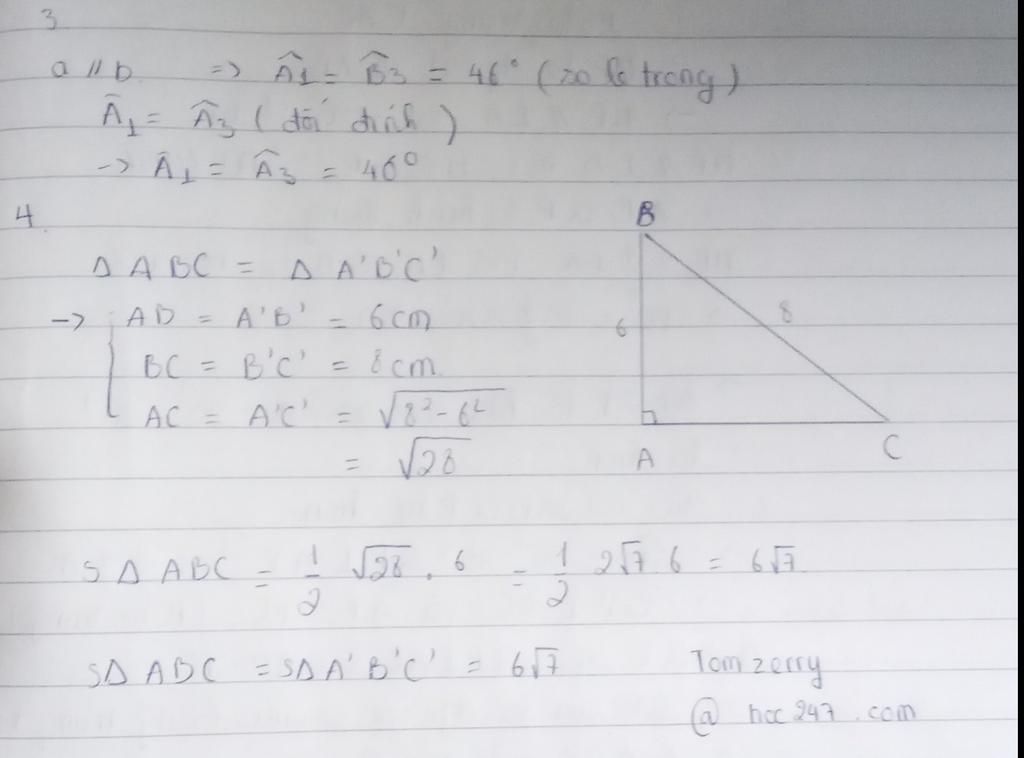 3
a // b => Â1 = B̂3 = 46° (so le trong)
Â1 = Â3 (đối đỉnh)
-> Â1 = Â3 = 46°
4
B
Δ ABC = Δ A'B'C'
-> { AB = A'B' = 6cm
6 8
BC = B'C' = 8cm
AC = A'C' = √(8² - 6²)
= √28
A C
SΔ ABC = 1/2 √28 . 6 = 1/2 2√7 6 = 6√7
SΔ ABC = SΔ A'B'C' = 6√7
Tom zerry
@ hoc247.com